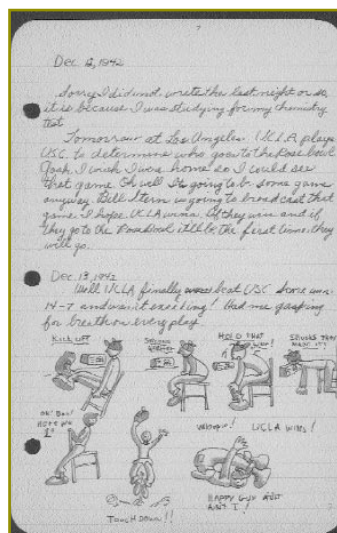 Dec. 12, 1942
Sorry I did not write the last night or so,
it is because I was studying for my chemistry
test
Tomorrow at Los Angeles, UCLA plays
USC to determine who goes to the Rose bowl
Gosh I wish I was home so I could see
that game. Oh well It's going to be some game
anyway. Bill Stern is going to broadcast that
game. I hope UCLA wins. If they win and if
they go to the Rose bowl it'll be the first time they
will go.
Dec. 13, 1942
Well UCLA finally beat USC Score was
14-7 and was it exciting! Had me gasping
for breath on every play
KICK OFF
SECOND QUARTER
HOLD THAT
LINE!
OH! BOY!
TOUCH DOWN!!
Whoopie!
UCLA WINS!
HAPPY GUY AIN'T
AIN'T I!